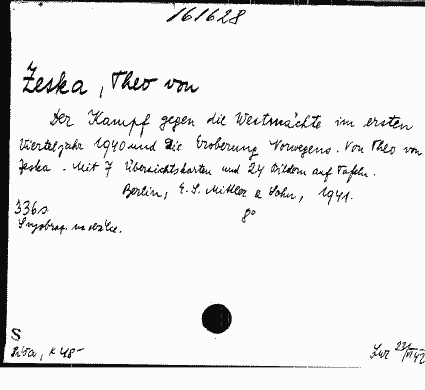 161628
Zeska, Theo von
Der Kampf gegen die Westmächte im ersten
Vierteljahr 1940 und die Eroberung Norwegens. Von Theo von
Zeska. Mit 7 Übersichtskarten und 24 Bildern auf Tafeln.
Berlin, E. S. Mittler & Sohn, 1941.
336s. 8°
S
K 48-